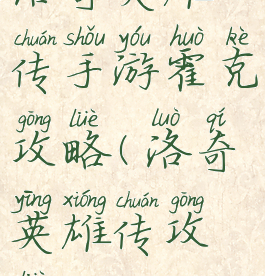 chuán shǒu yóu huò kè
传手游霍克
gōng lüè luò qí
攻略(洛奇
yīng xióng chuán gōng
英雄传攻